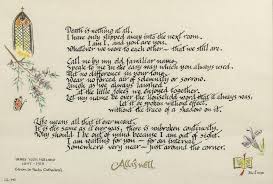 Death is nothing at all.
I have only slipped away into the next room.
I am I, and you are you,
Whatever we were to each other – that we still are.
Call me by my old familiar name,
Speak to me in the easy way which you always used.
Put no difference in your tone,
Wear no forced air of solemnity or sorrow.
Laugh as we always laughed
at the little jokes we enjoyed together.
Let my name be ever the household word that it always was,
let it be spoken without effect,
without the trace of a shadow on it.
Life means all that it ever meant.
It is the same as it ever was, there is unbroken continuity.
Why should I be out of mind because I am out of sight.
I am waiting for you – for an interval
Somewhere very near – just around the corner.
All is well.
HENRY SCOTT HOLLAND
1847 – 1918